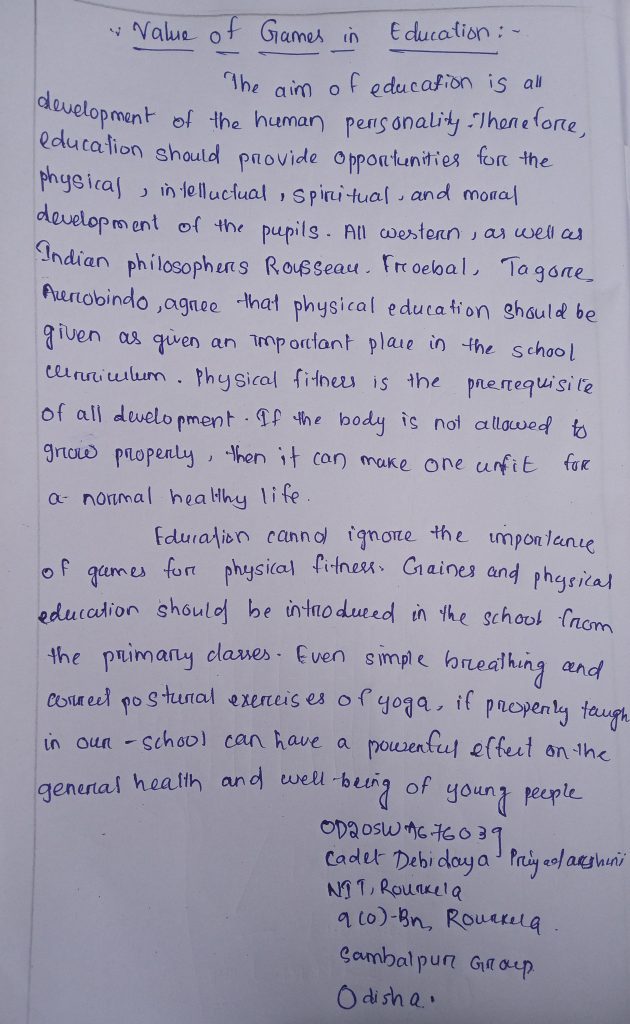 Value of Games in Education :-
The aim of education is all
development of the human personality. Therefore,
education should provide opportunities for the
physical, intelluctual, spiritual, and moral
development of the pupils. All western, as well as
Indian philosophers Rousseau. Froebal, Tagore
Aurobindo, agree that physical education should be
given as given an important place in the school
curriculum. Physical fitness is the prerrequisite
of all development. If the body is not allowed to
grow properly, then it can make one unfit for
a normal healthy life.
Education cannot ignore the importance
of games for physical fitness. Gaines and physical
education should be introduced in the school from
the primary classes. Even simple breathing and
correct postural exercises of yoga, if properly taugh
in our - school can have a powerful effect on the
general health and well-being of young people
OD20SWA676039
Cadet Debidaya Priyadarshini
NIT, Rourkela
9(O)-Bn, Rourkela.
Sambalpur Group
Odisha.